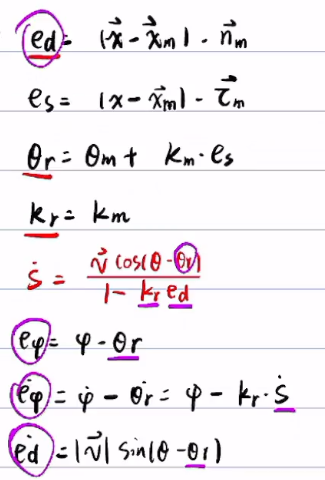 ed = |x⃗ - x⃗m| · n⃗m
es = |x - x⃗m| - τ⃗m
θr = θm + km · es
kr = km
ṡ = v⃗ cos(θ - θr) / 1 - kr ed
eφ = φ - θr
ėφ = φ̇ - θ̇r = φ̇ - kr · ṡ
ėd = |v⃗| sin(θ - θr)